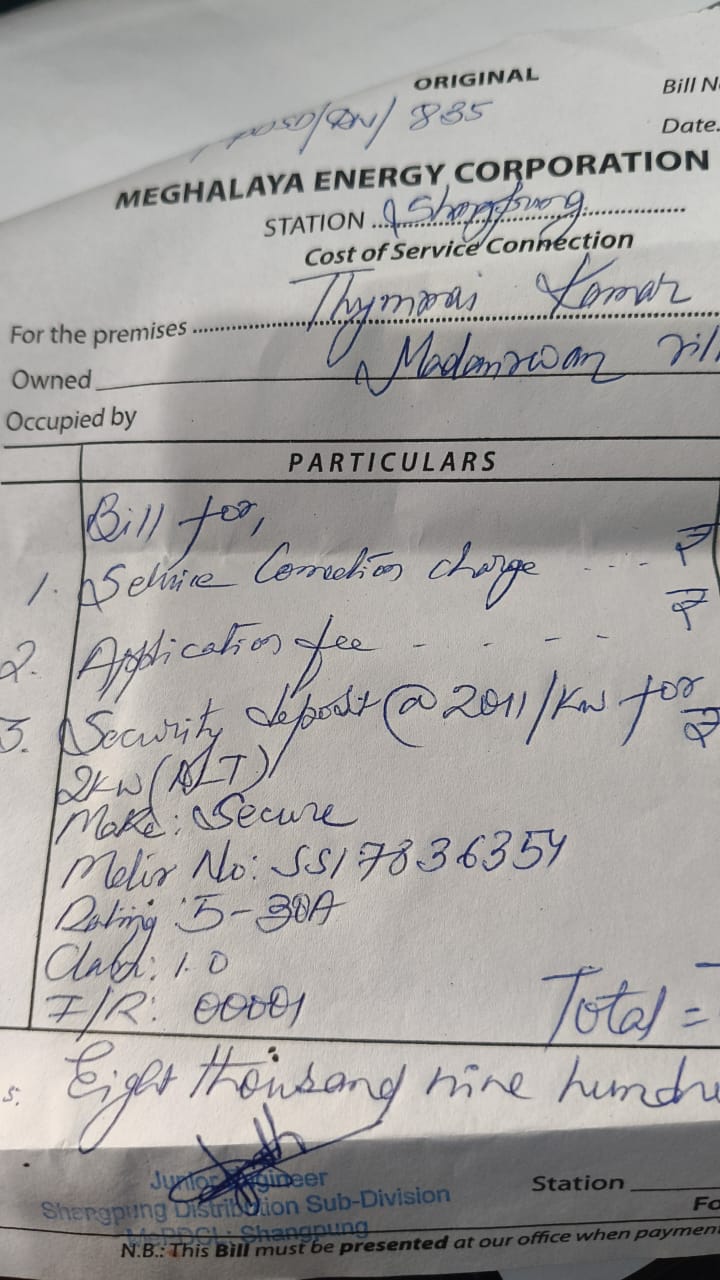 ORIGINAL
Bill N
835
Date.
MEGHALAYA ENERGY CORPORATION
STATION
Cost of Service Connection
For the premises
Owned
Occupied by
PARTICULARS
Bill for,
1. Service Connection charge .... ₹
2. Application fee - - - - ₹
3. Security deposit @ 2011/KW for ₹
2KW (DLT)
Make: Secure
Meter No: SS17836354
Rating: 5-30A
Class: 1.0
I/R: 00001
Total =
s. Eight thousand nine hundre
Junior Engineer
Shangpung Distribution Sub-Division
MePDCL: Shangpung
Station
Fo
N.B.: This Bill must be presented at our office when paymen